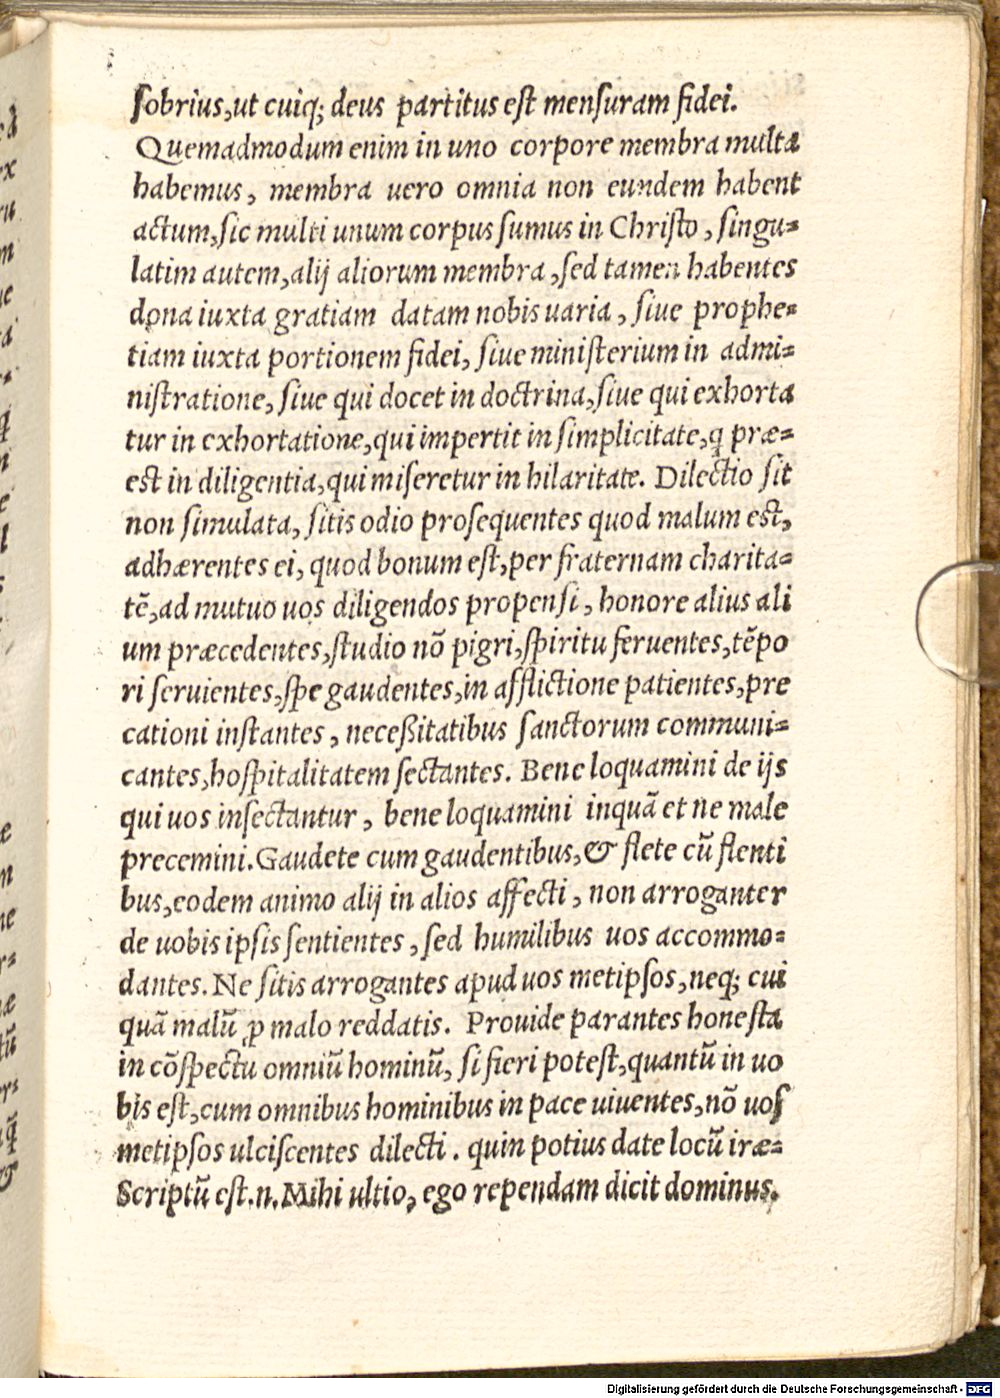 ſobrius,ut cuiq; deus partitus eſt menſuram fidei.
Quemadmodum enim in uno corpore membra multa
habemus, membra uero omnia non eundem habent
actum,ſic multi unum corpus ſumus in Chriſto, ſingu=
latim autem,alij aliorum membra,ſed tamen habentes
dona iuxta gratiam datam nobis uaria, ſiue prophe=
tiam iuxta portionem fidei, ſiue miniſterium in admi=
niſtratione, ſiue qui docet in doctrina,ſiue qui exhorta
tur in exhortatione,qui impertit in ſimplicitate,q præ=
eſt in diligentia,qui miſeretur in hilaritate. Dilectio ſit
non ſimulata, ſitis odio proſequentes quod malum eſt,
adhærentes ei, quod bonum eſt,per fraternam charita=
tē,ad mutuo uos diligendos propenſi, honore alius ali
um præcedentes,ſtudio nō pigri,ſpiritu feruentes,tēpo
ri ſeruientes,ſpe gaudentes,in afflictione patientes,pre
cationi inſtantes, neceßitatibus ſanctorum communi=
cantes,hoſpitalitatem ſectantes. Bene loquamini de ijs
qui uos inſectantur, bene loquamini inquā et ne male
precemini.Gaudete cum gaudentibus,& flete cū flenti
bus,eodem animo alij in alios affecti, non arroganter
de uobis ipſis ſentientes, ſed humilibus uos accommo=
dantes. Ne ſitis arrogantes apud uos metipſos,neq; cui
quā malū ꝓ malo reddatis. Prouide parantes honeſta
in cōſpectu omniū hominū, ſi fieri poteſt,quantū in uo
bis eſt,cum omnibus hominibus in pace uiuentes,nō uoſ
metipſos ulciſcentes dilecti. quin potius date locū iræ=
Scriptū eſt.n.Mihi ultio, ego rependam dicit dominus.
Digitalisierung gefördert durch die Deutsche Forschungsgemeinschaft - DFG